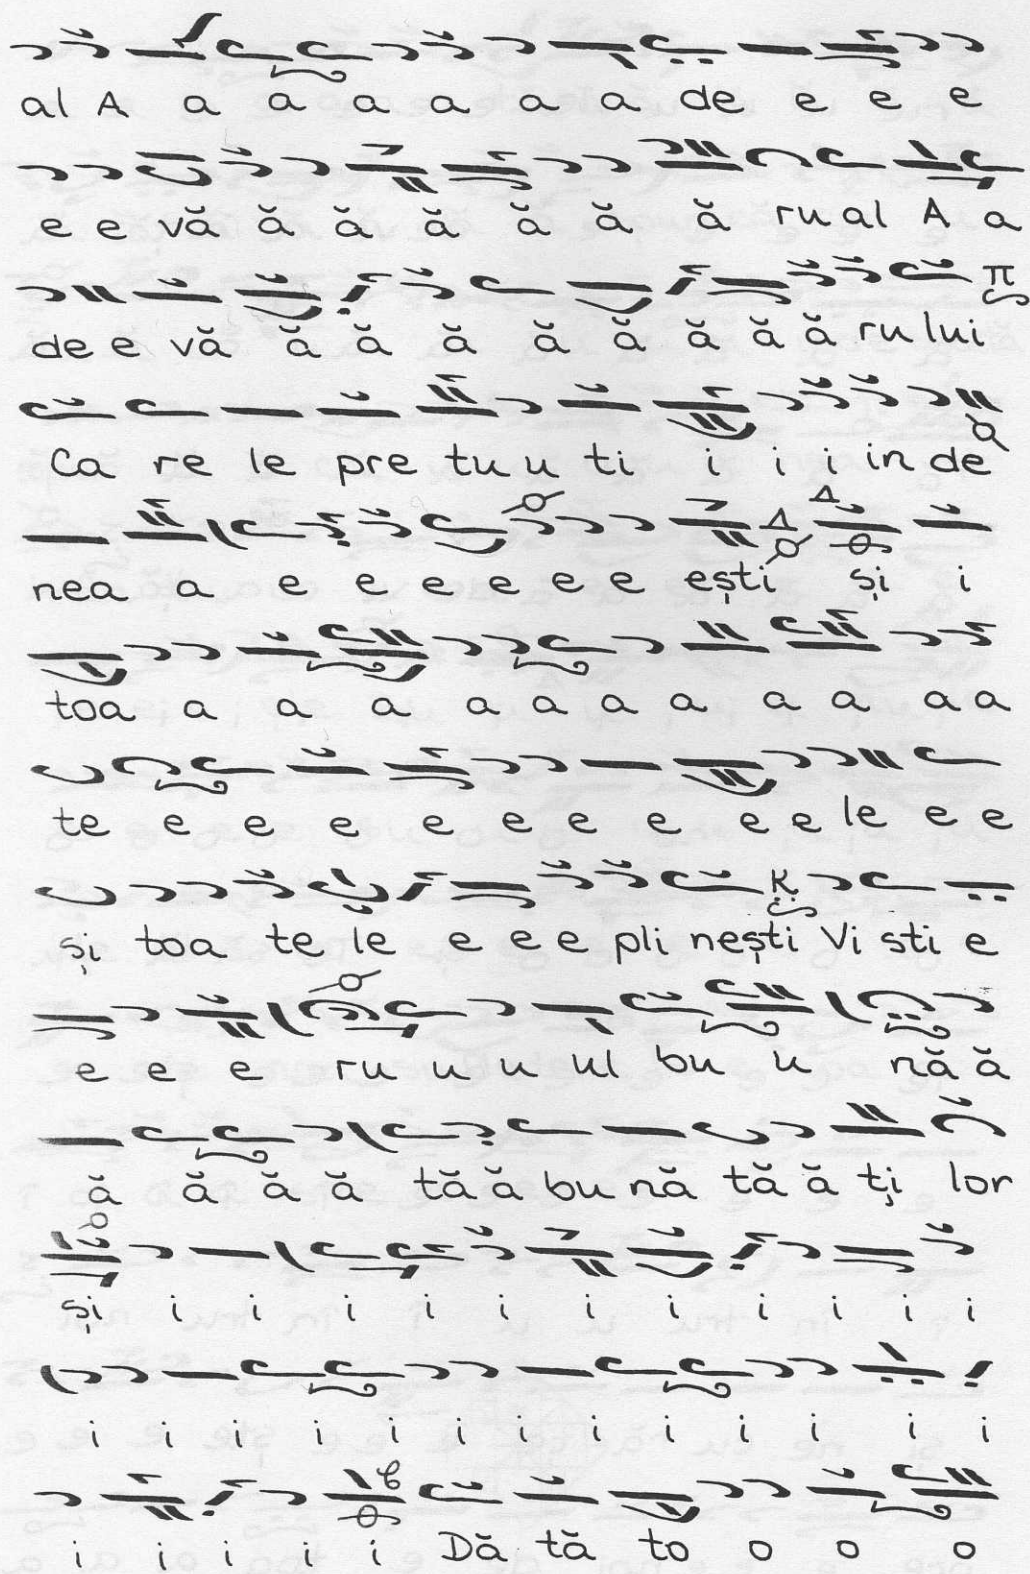 al A a a a a a a de e e e
e e vă ă ă ă ă ă ă ru al A a
de e vă ă ă ă ă ă ă ă ă ru lui
Ca re le pre tu u ti i i i in de
nea a e e e e e e ești și i
toa a a a a a a a a a a a
te e e e e e e e e e le e e
și toa te le e e e pli nești Vi sti e
e e e ru u u ul bu u nă ă
ă ă ă ă tă ă bu nă tă ă ți lor
și i i i i i i i i i i i
i i i i i i i i i i i i i
i i i i i Dă tă to o o o